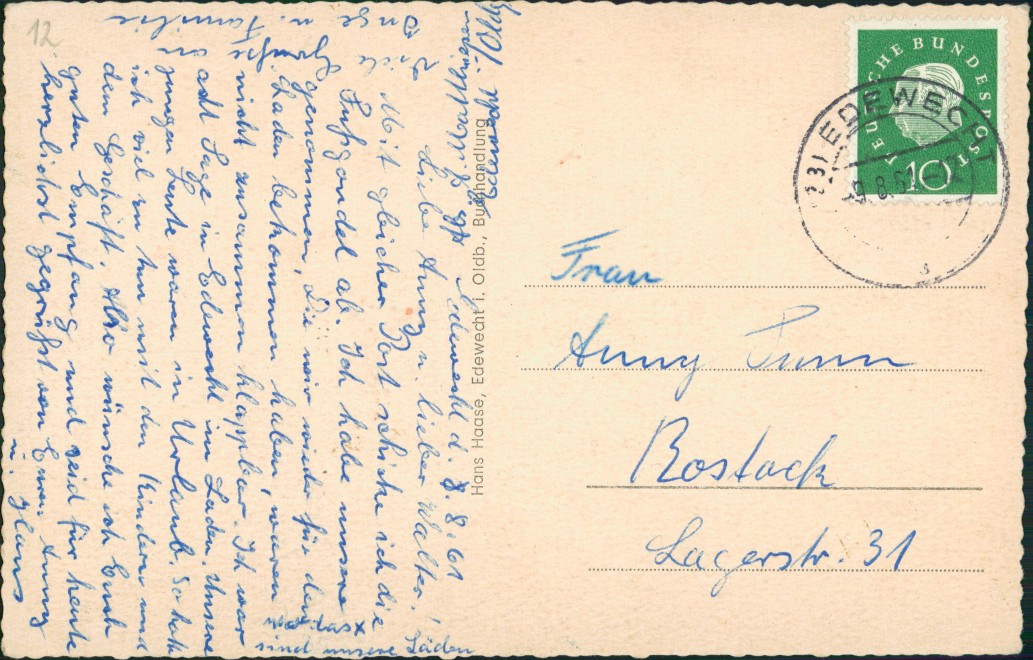 12
Edewecht d. 8.8.61
Liebe Anny u. lieber Walter!
Mit gleicher Post schicke ich die
Fußgondel ab. Ich habe unsre
genommen, die wir wieder für den
Laden bekommen haben, waren
nicht zusammen klappbar. Ich war
acht Tage in Edewecht im Laden. Unsere
jungen Leute waren in Urlaub. So hatte
ich viel zu tun mit den Kindern und
dem Geschäft. Also wünsche ich Euch
guten Empfang und seid für heute
herzlichst gegrüßt von Euren Anny
u. Hans
sind unsere Läden
Familie
Hans Haase, Edewecht i. Oldb., Buchhandlung
DEUTSCHE BUNDESPOST
10
(23) EDEWECHT
-9.8.61
Frau
Anny
Rostock
Lagerstr. 31